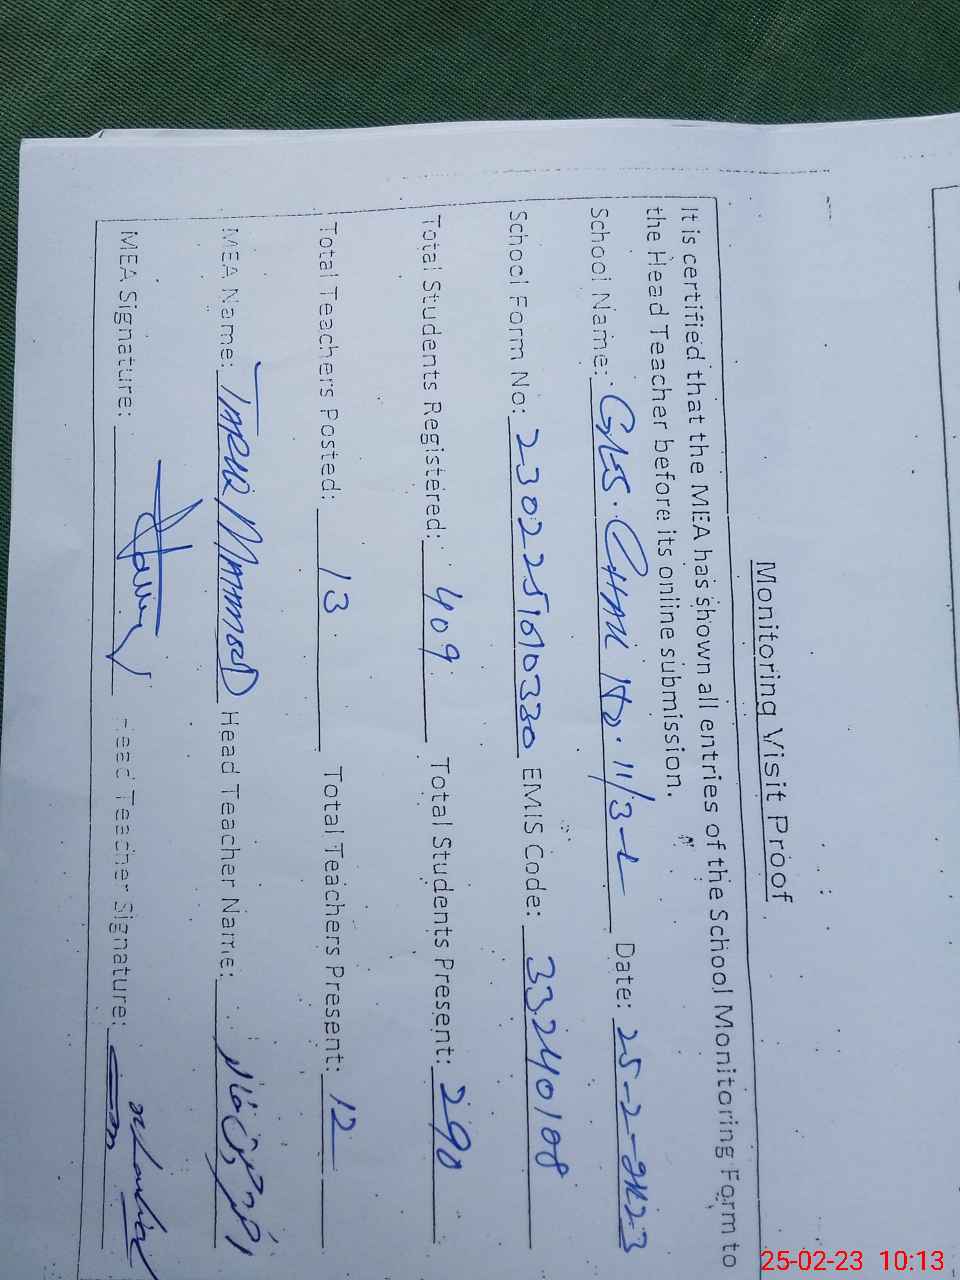 Monitoring Visit Proof
It is certified that the MEA has shown all entries of the School Monitoring Form to
the Head Teacher before its online submission.
School Name: 11/3-L Date: 25-2-2023
School Form No: EMIS Code: 33240108
Total Students Registered: 409 Total Students Present: 290
Total Teachers Posted: 13 Total Teachers Present: 12
MEA Name: TARIQ MAHMOOD Head Teacher Name:
MEA Signature: Head Teacher Signature:
25-02-23 10:13